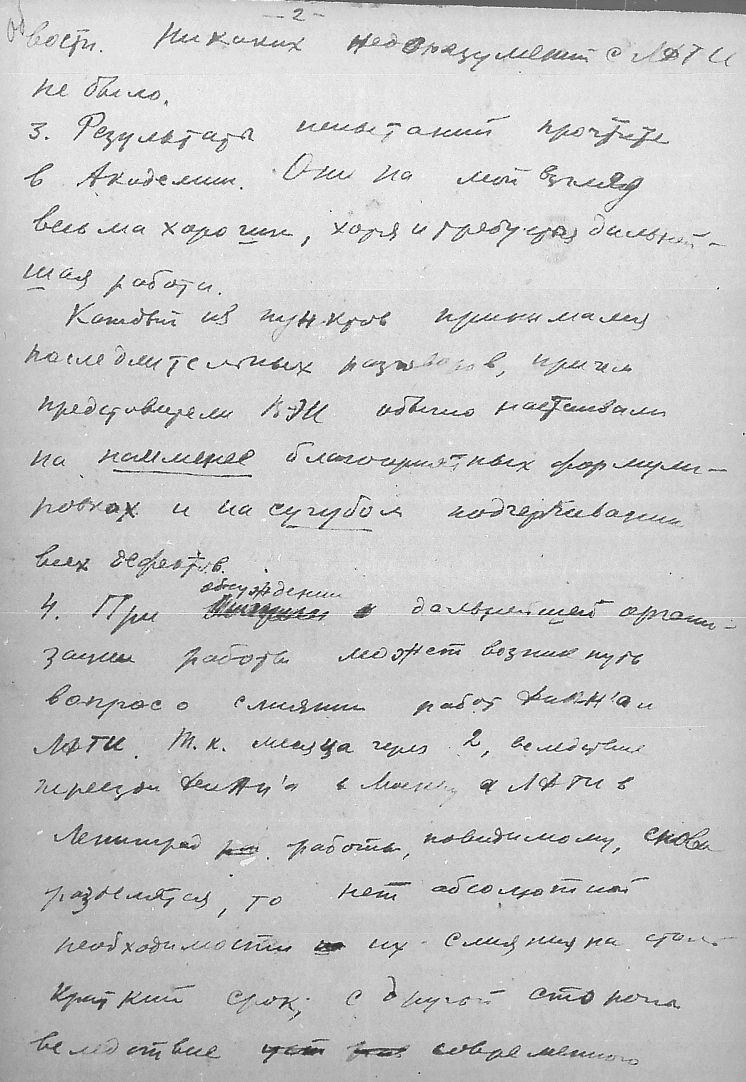 об -2-
вости. Никаких недоразумений с ЛФТИ
не было.
3. Результаты испытаний прочтите
в Академии. Они на мой взгляд
весьма хороши, хотя и требуется дальней-
шая работа.
Каждый из пунктов принимался
после длительных разговоров, причем
представители ВЭИ обычно настаивали
на наименее благоприятных формули-
ровках и на сугубом подчеркивании
всех дефектов.
4. При обсуждении дальнейшей органи-
зации работы может возникнуть
вопрос о слиянии работ ФИАН'а и
ЛФТИ. Т.к. месяца через 2, вследствие
переезда ФИАН'а в Москву а ЛФТИ в
Ленинград работы, повидимому, снова
разделятся, то нет абсолютной
необходимости их слияния на столь
краткий срок; с другой стороны
вследствие современного